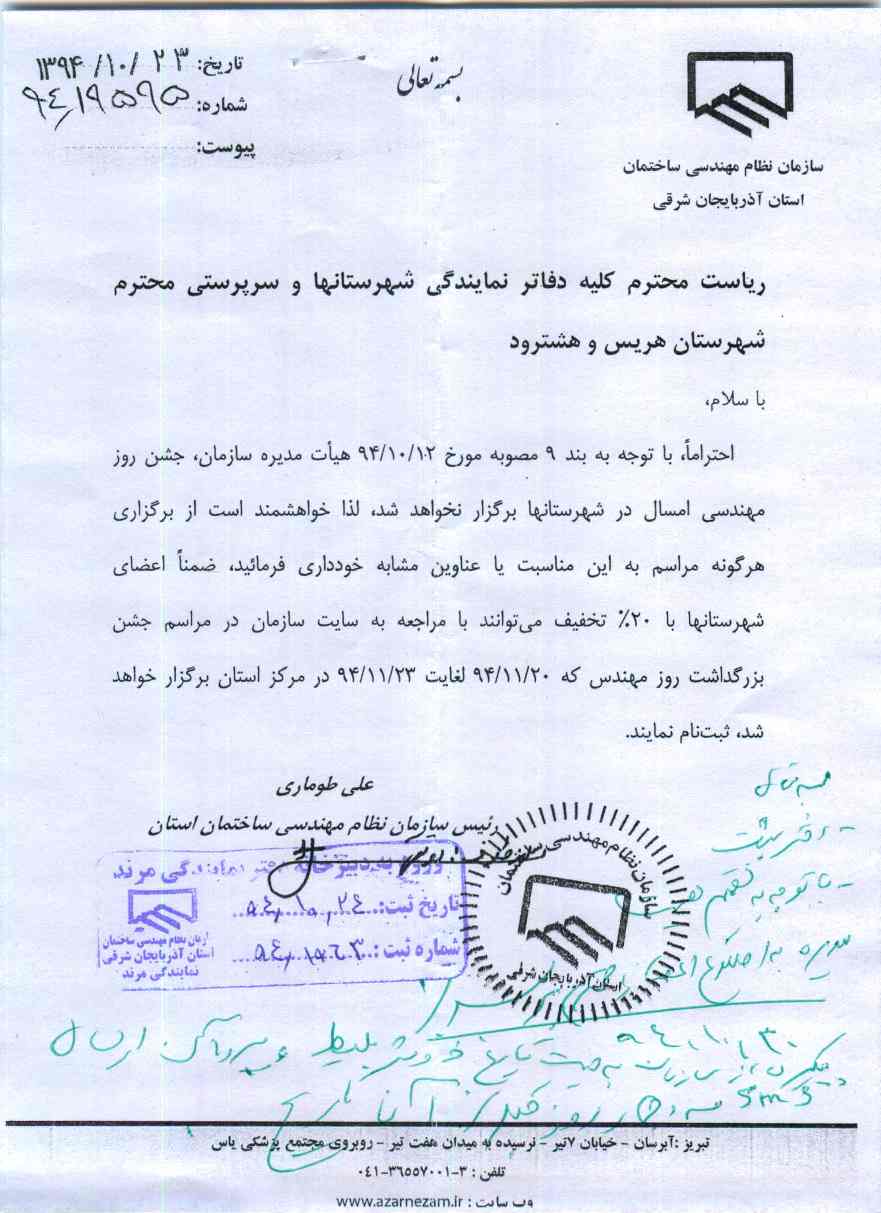 بسمه تعالی
تاریخ: ۱۳۹۴/۱۰/۲۳
شماره: ۹۴/۱۹۵۹۵
پیوست:
سازمان نظام مهندسی ساختمان
استان آذربایجان شرقی
ریاست محترم کلیه دفاتر نمایندگی شهرستانها و سرپرستی محترم
شهرستان هریس و هشترود
با سلام،
احتراماً، با توجه به بند ۹ مصوبه مورخ ۹۴/۱۰/۱۲ هیأت مدیره سازمان، جشن روز
مهندسی امسال در شهرستانها برگزار نخواهد شد، لذا خواهشمند است از برگزاری
هرگونه مراسم به این مناسبت یا عناوین مشابه خودداری فرمائید، ضمناً اعضای
شهرستانها با ۲۰٪ تخفیف می‌توانند با مراجعه به سایت سازمان در مراسم جشن
بزرگداشت روز مهندس که ۹۴/۱۱/۲۰ لغایت ۹۴/۱۱/۲۳ در مرکز استان برگزار خواهد
شد، ثبت‌نام نمایند.
علی طوماری
رئیس سازمان نظام مهندسی ساختمان استان
سازمان نظام مهندسی ساختمان
استان آذربایجان شرقی
ورود به دبیرخانه دفتر نمایندگی مرند
تاریخ ثبت: ۹۴/۱۰/۲۴
شماره ثبت:
سازمان نظام مهندسی ساختمان
استان آذربایجان شرقی
نمایندگی مرند
بسمه تعالی
- دفتر
- با توجه به
مدیره به اطلاع
۹۴/۱۰/۳۰
ارسال
sms
تبریز :آبرسان - خیابان ۷تیر - نرسیده به میدان هفت تیر - روبروی مجتمع پزشکی یاس
تلفن : ۳-۳۶۵۵۷۰۰۱-۰۴۱
وب سایت : www.azarnezam.ir